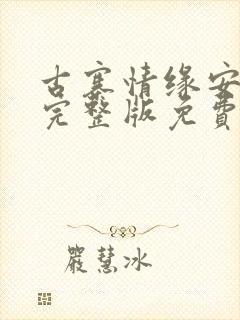 古寨情缘安
完整版免費
嚴慧冰